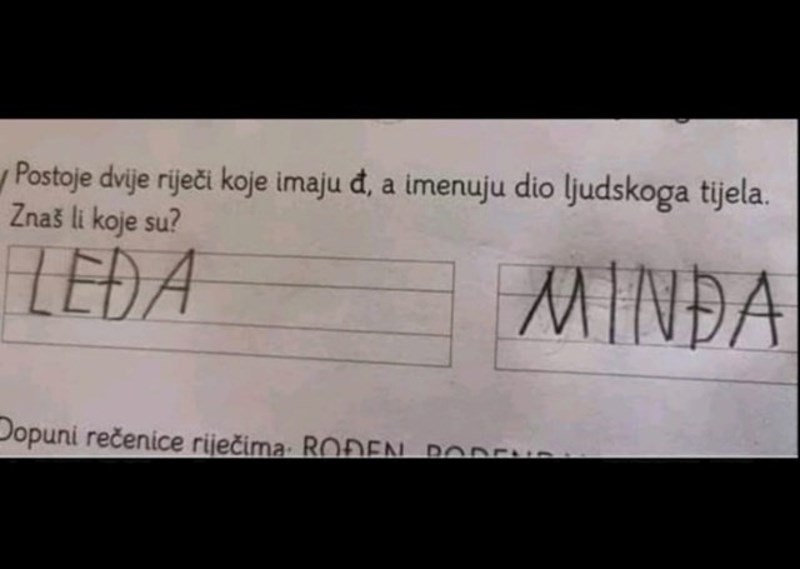 Postoje dvije riječi koje imaju đ, a imenuju dio ljudskoga tijela.
Znaš li koje su?
LEĐA MINĐA
Dopuni rečenice riječima: ROĐEN,